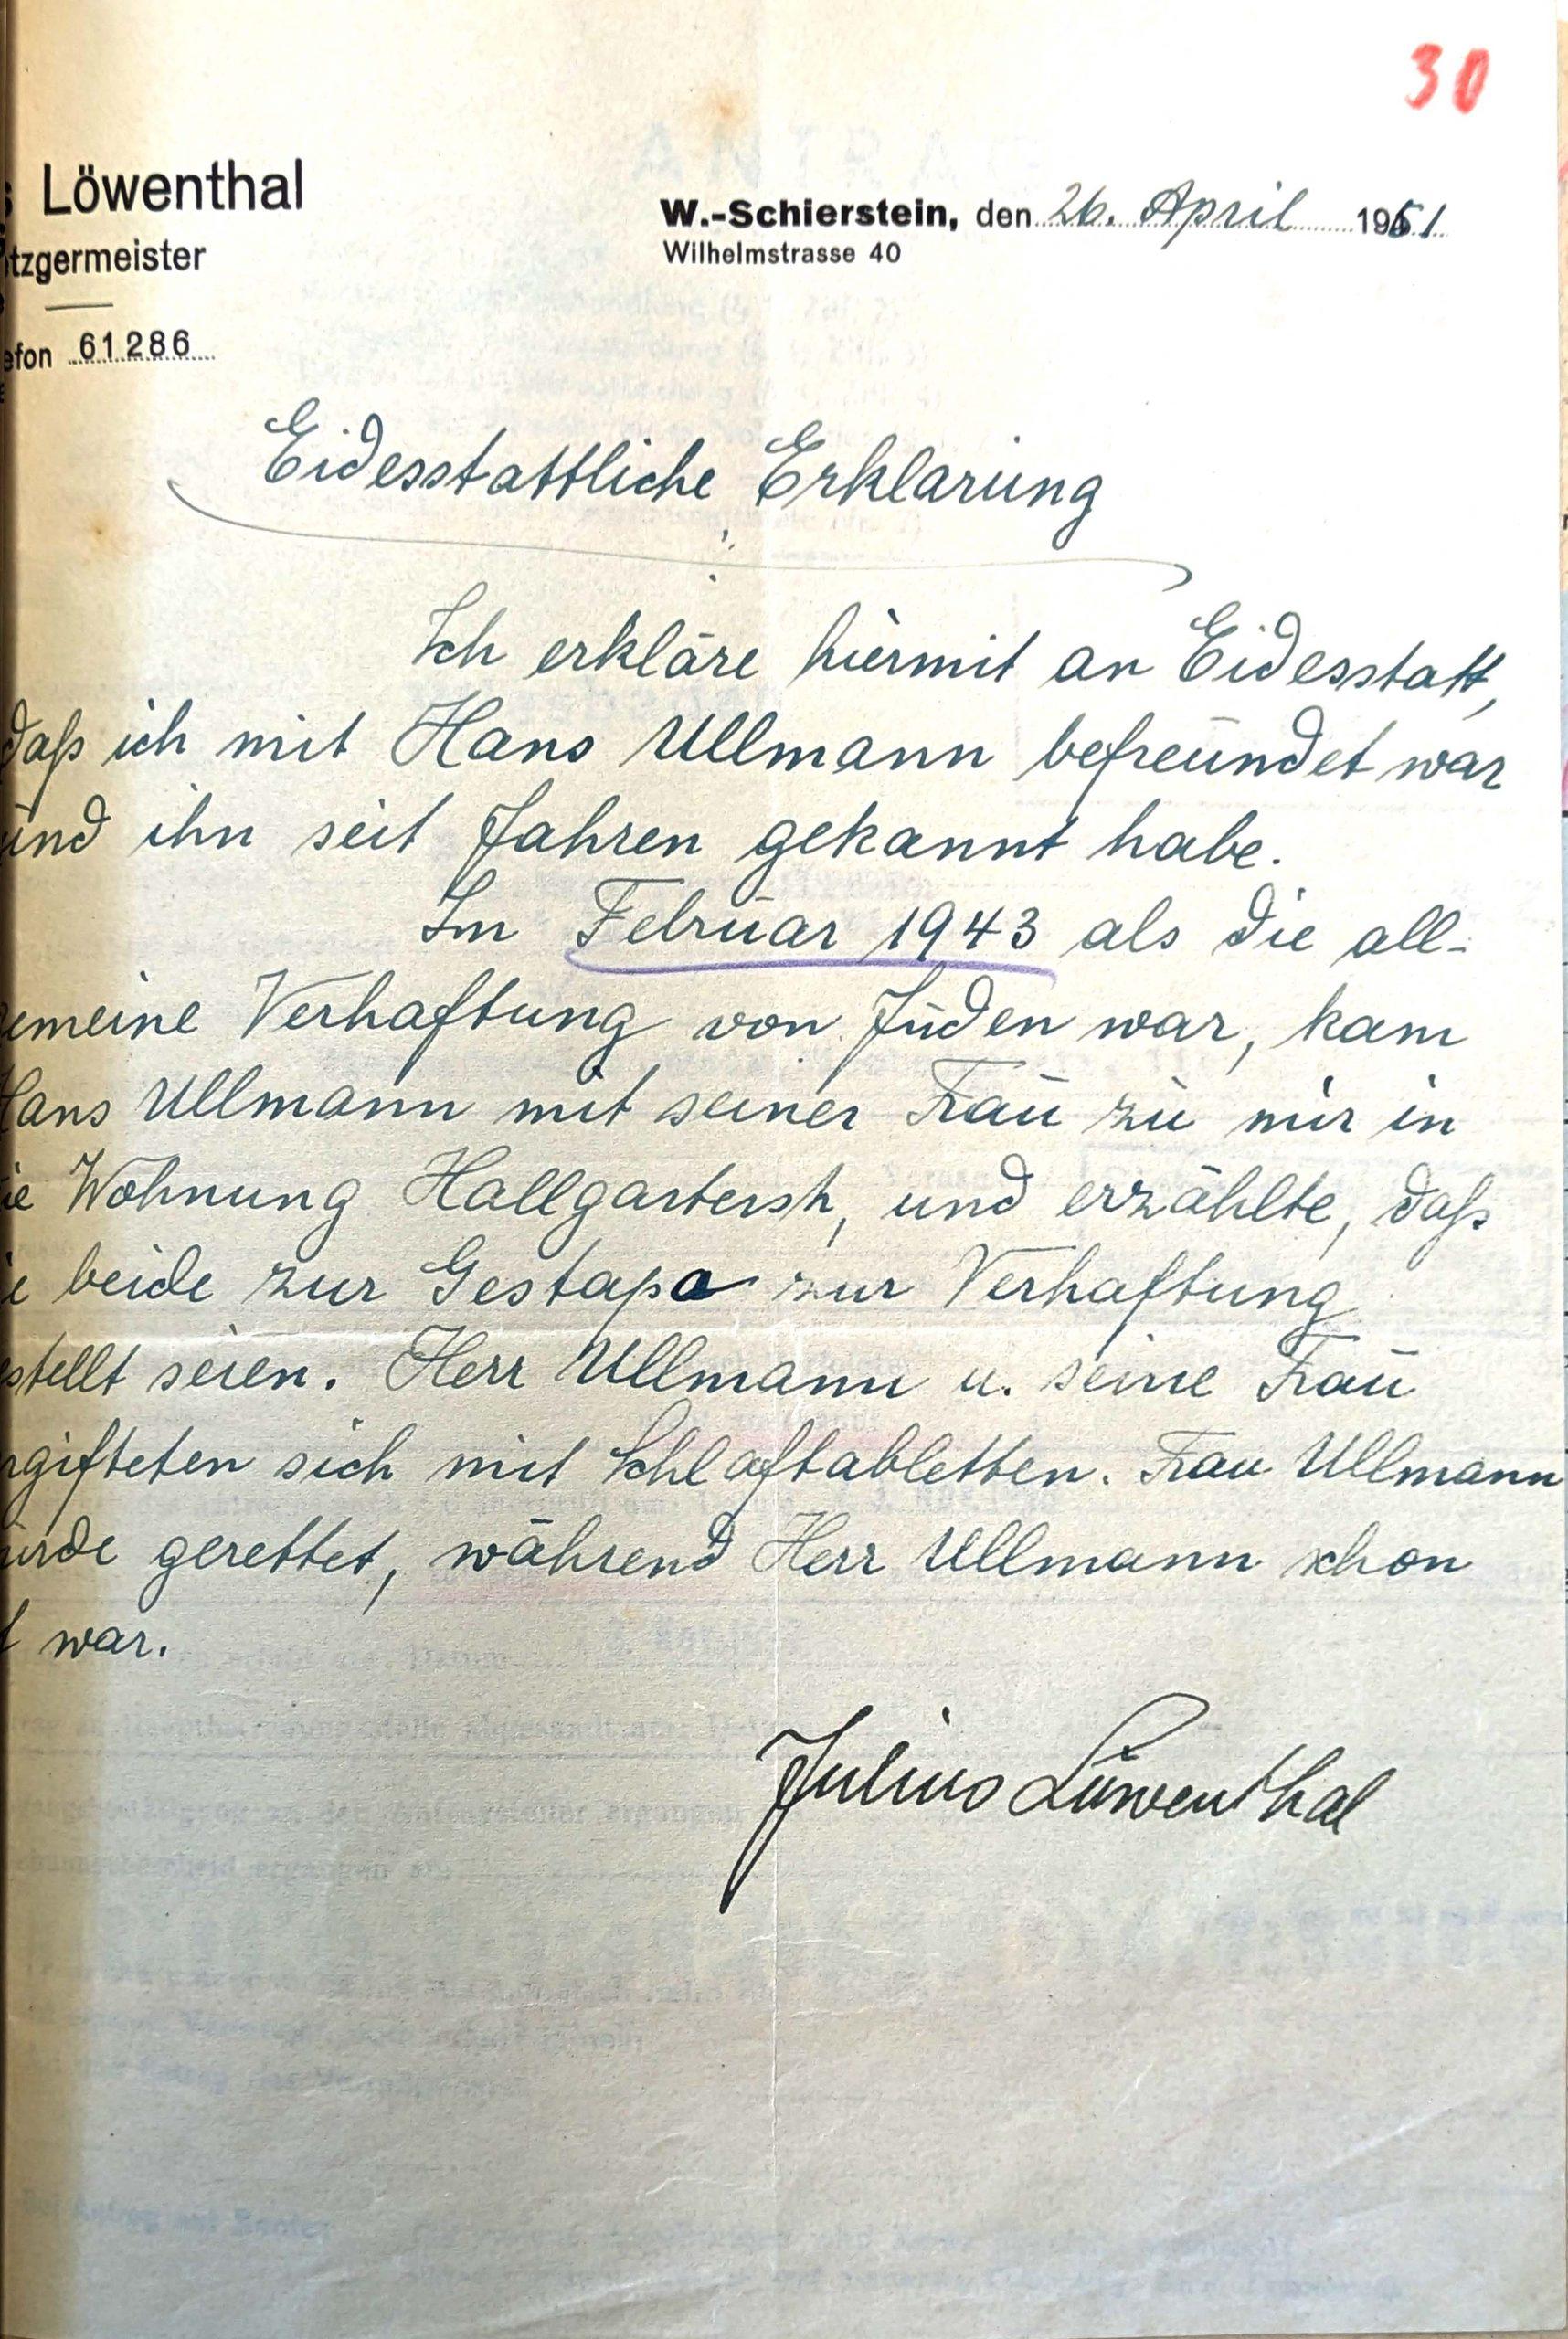 30
Löwenthal
tzgermeister
efon 61286
W.-Schierstein, den 26. April 1951
Wilhelmstrasse 40
Eidesstattliche Erklarung
Ich erkläre hiermit an Eidesstatt,
daß ich mit Hans Ullmann befreundet war
und ihn seit Jahren gekannt habe.
Im Februar 1943 als die all-
emeine Verhaftung von Juden war, kam
Hans Ullmann mit seiner Frau zu mir in
ie Wohnung Hallgarterstr, und erzählte, daß
ie beide zur Gestapo zur Verhaftung
estellt seien. Herr Ullmann u. seine Frau
rgifteten sich mit Schlaftabletten. Frau Ullmann
urde gerettet, während Herr Ullmann schon
t war.
Julius Löwenthal